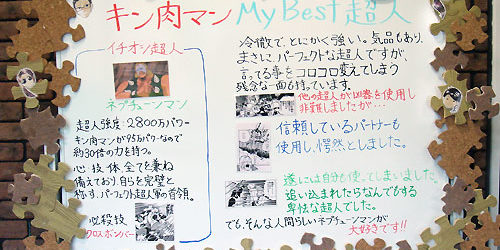 キン肉マン My Best 超人
イチオシ超人
ネプチューンマン
超人強度・2800万パワー。
キン肉マンが95万パワーなので
約30倍の力を持つ。
心、技、体、全てを兼ね
備えており、自らを完璧と
称す、パーフェクト超人軍の首領。
必殺技
クロスボンバー
冷徹で、とにかく強い。気品もあり、
まさに、パーフェクトな超人ですが、
言ってる事をコロコロ変えてしまう
残念な一面も持っています。
他の超人が凶器を使用し
非難しましたが…
信頼しているパートナーも
使用し、愕然としました。
遂には自分も使ってしまいました。
追い込まれたらなんでもする
卑怯な超人でした。
でも、そんな人間らしいネプチューンマンが
大好きです!!